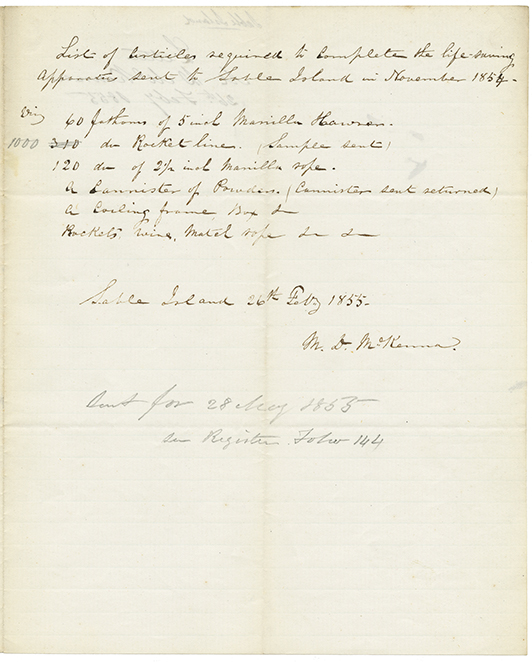 List of Articles required to Complete the life-saving
Apparatus sent to Sable Island in November 1854-
Viz
60 fathoms of 5 inch Manilla Hawser.
1000 310 do Rocket line. (Sample sent)
120 do of 2½ inch Manilla rope.
A Cannister of Powder. (Cannister sent returned)
A Coiling frame, Box &
Rockets, wire, Match rope & &
Sable Island 26th Feby 1855-
M. D. McKenna.
Sent for 28 May 1855
Register Folio 144